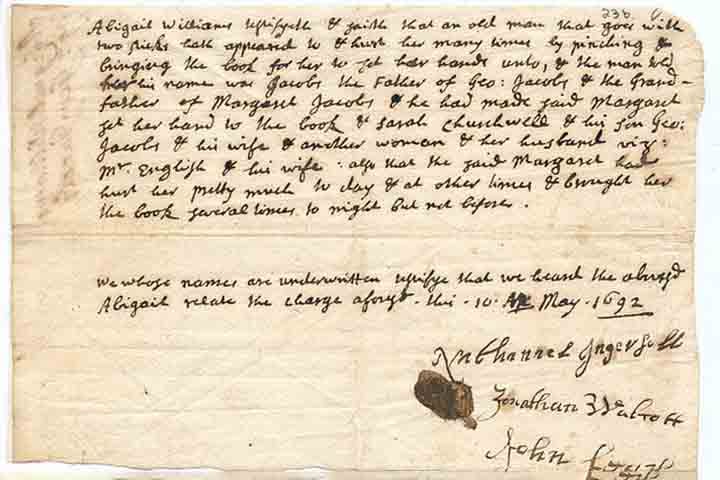 236
Abigail Williams testifyeth & saith that an old man that goes with
two sticks hath appeared to & hurt her many times by pinching &
bringing the book for her to set her hands unto, & the man told
her his name was Jacobs the Father of Geo: Jacobs & the Grand-
father of Margaret Jacobs & he had made said Margaret
set her hand to the book & Sarah Churchwell & his son Geo:
Jacobs & his wife & another woman & her husband viz:
Mr. English & his wife : also that the said Margaret had
hurt her pretty much to day & at other times & brought her
the book several times to night but not before.
We whose names are underwritten testifye that we heard the abovesd
Abigail relate the charge aforesd this 10. May. 1692
Nathanniel Ingersoll
Jonathan Walcott
John